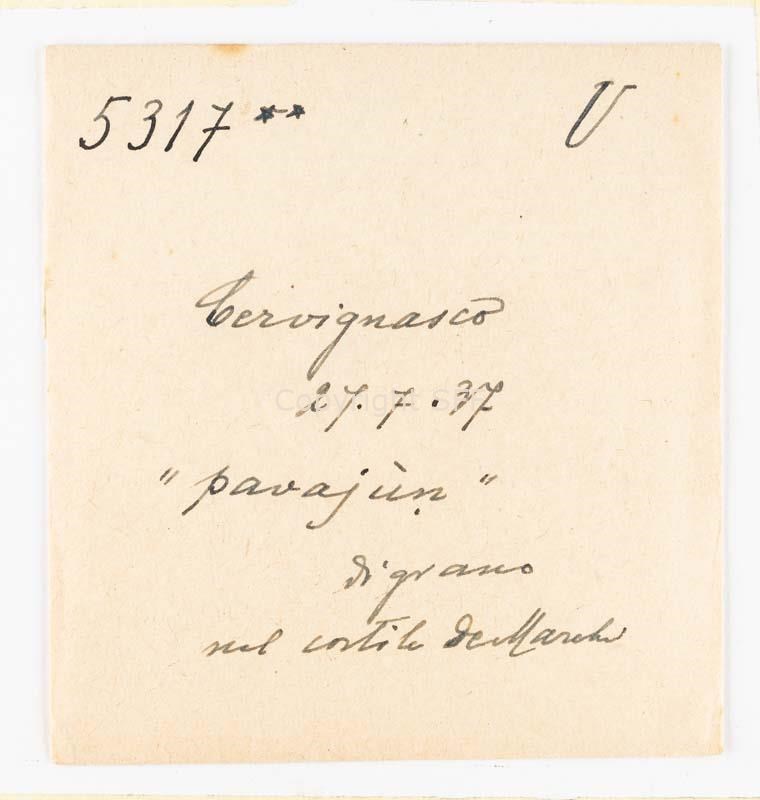 5317** V
Cervignasco
27.7.37
"pavajùṇ"
di grano
nel cortile De Marchi